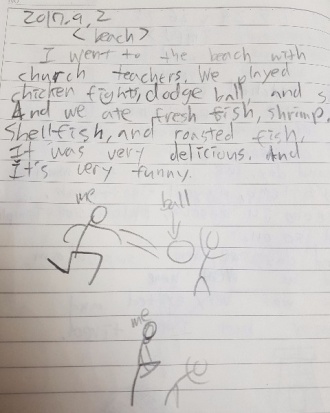 2017.9.2
<beach>
I went to the beach with
church teachers. We played
chicken fights, dodge ball, and s
And we ate fresh fish, shrimp,
shellfish, and roasted fish.
It was very delicious. And
It's very funny.
me
ball
me